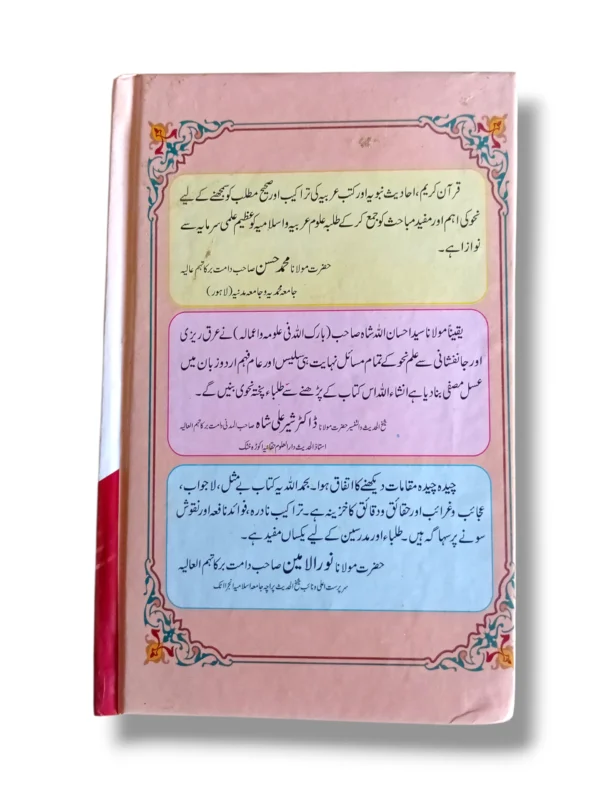 قرآن کریم، احادیث نبویہ اور کتب عربیہ کی تراکیب اور صحیح مطلب کو سمجھنے کے لیے
نحو کی اہم اور مفید مباحث کو جمع کر کے طلبہ علوم عربیہ و اسلامیہ کو عظیم علمی سرمایہ سے
نوازا ہے۔
حضرت مولانا محمد حسن صاحب دامت برکاتہم عالیہ
جامعہ محمدیہ و جامعہ مدنیہ (لاہور)
یقیناً مولانا سید احسان اللہ شاہ صاحب (بارک اللہ فی علومہ و اعمالہ) نے عرق ریزی
اور جانفشانی سے علم نحو کے تمام مسائل نہایت ہی سلیس اور عام فہم اردو زبان میں
عسل مصفی بنا دیا ہے انشاء اللہ اس کتاب کے پڑھنے سے طلباء پختہ نحوی بنیں گے۔
شیخ الحدیث والتفسیر حضرت مولانا ڈاکٹر شیر علی شاہ صاحب المدنی دامت برکاتہم العالیہ
استاذ الحدیث دار العلوم حقانیہ اکوڑہ خٹک
چیدہ چیدہ مقامات دیکھنے کا اتفاق ہوا۔ بحمد اللہ یہ کتاب بے مثل، لاجواب،
عجائب و غرائب اور حقائق و دقائق کا خزینہ ہے۔ تراکیب نادرہ، فوائد نافعہ اور نقوش
سونے پر سہاگہ ہیں۔ طلباء اور مدرسین کے لیے یکساں مفید ہے۔
حضرت مولانا نور الامین صاحب دامت برکاتہم العالیہ
سرپرست اعلیٰ و نائب شیخ الحدیث جامعہ اسلامیہ اٹک